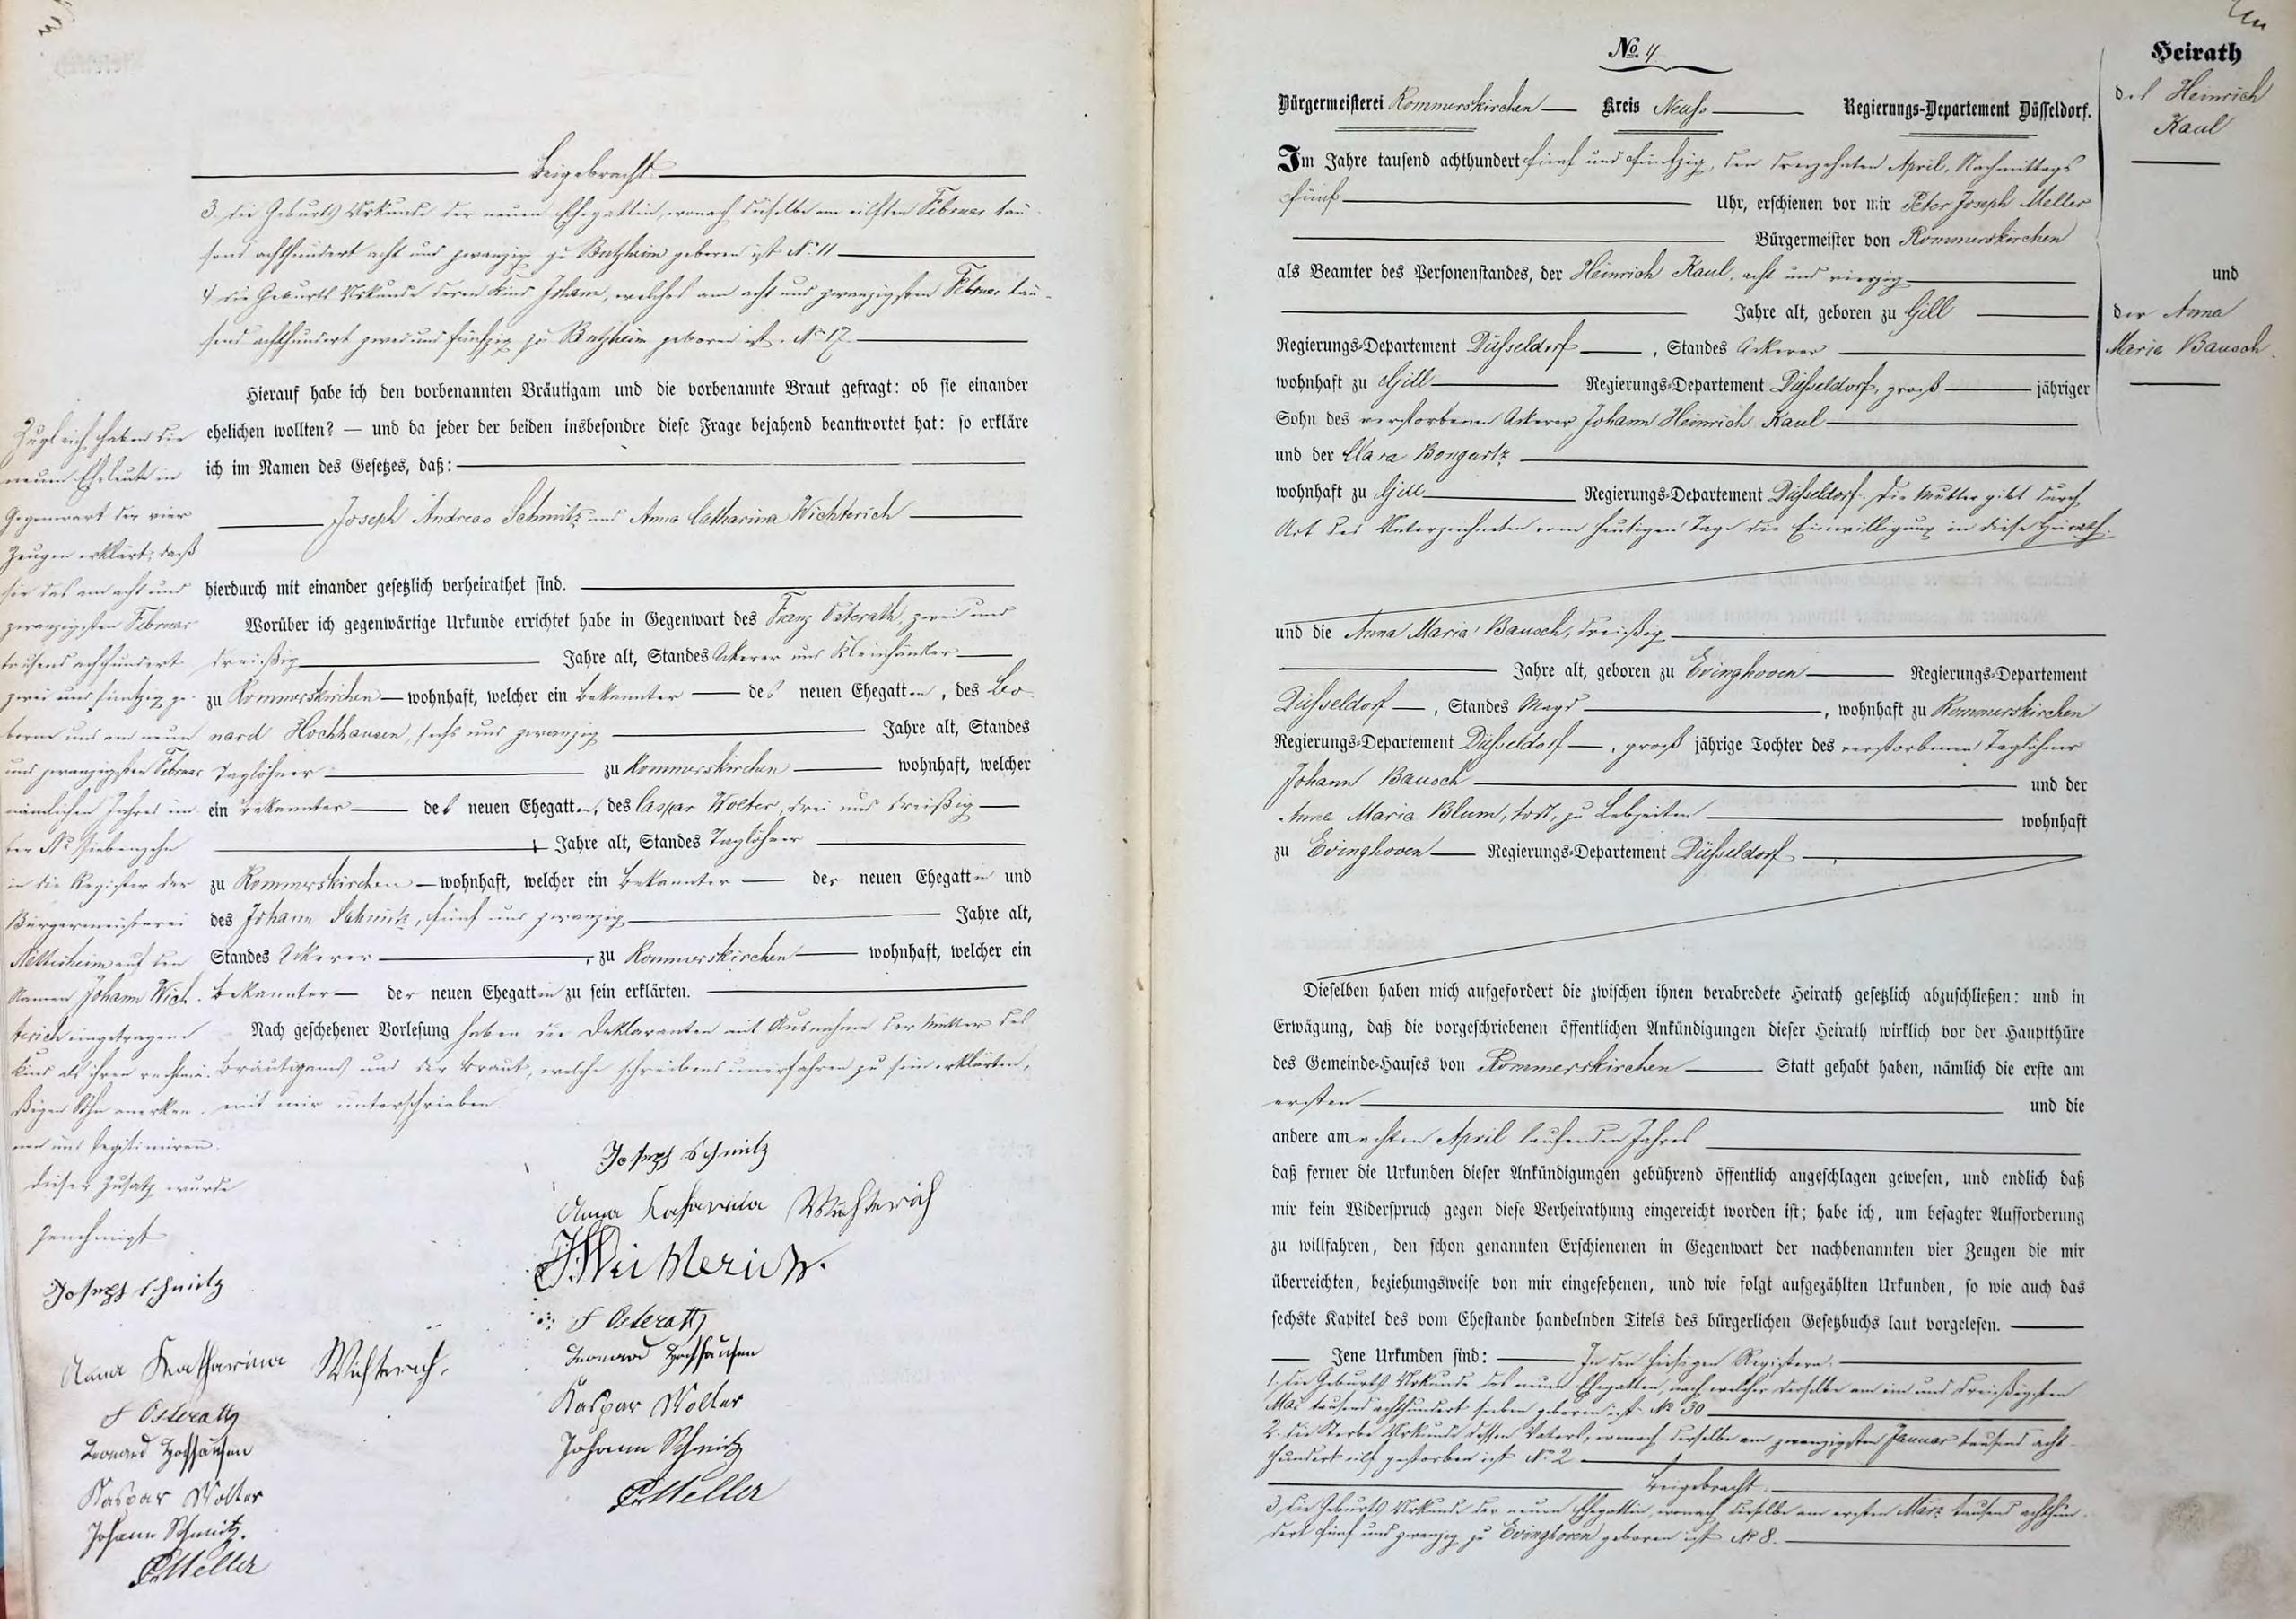 Beigebracht.
3. die Geburts Urkunde der neuen Ehegattin, wonach dieselbe am eilften Februar tau-
send achthundert acht und zwanzig zu Butzheim geboren ist No 11
4 die Geburts Urkunde deren Kind Johann, welches am acht und zwanzigsten Februar tau-
send achthundert zwei und fünfzig zu Butzheim geboren ist. No 17.
Hierauf habe ich den vorbenannten Bräutigam und die vorbenannte Braut gefragt: ob sie einander
ehelichen wollten? — und da jeder der beiden insbesondre diese Frage bejahend beantwortet hat: so erkläre
ich im Namen des Gesetzes, daß:
Joseph Andreas Schmitz und Anna Catharina Wichterich
hierdurch mit einander gesetzlich verheirathet sind.
Worüber ich gegenwärtige Urkunde errichtet habe in Gegenwart des Franz Osterath, zwei und
dreißig Jahre alt, Standes Ackerer und Kleinhändler
zu Rommerskirchen wohnhaft, welcher ein Bekannter des neuen Ehegatten, des Leo-
nard Hochhausen, sechs und zwanzig Jahre alt, Standes
Taglöhner zu Rommerskirchen wohnhaft, welcher
ein Bekannter des neuen Ehegatten, des Caspar Wolter, drei und dreißig
Jahre alt, Standes Taglöhner
zu Rommerskirchen wohnhaft, welcher ein Bekannter der neuen Ehegattin und
des Johann Schmitz, fünf und zwanzig Jahre alt,
Standes Ackerer, zu Rommerskirchen wohnhaft, welcher ein
Bekannter der neuen Ehegattin zu sein erklärten.
Nach geschehener Vorlesung haben die Deklaranten mit Ausnahme der Mutter des
Bräutigams und der Braut, welche schreibens unerfahren zu sein erklärten,
mit mir unterschrieben.
Joseph Schmitz
Anna Katharina Wichterich
J. Wichterich.
F Osterath
Leonard Hochhausen
Kaspar Wolter
Johann Schmitz
P.J. Meller
Zugleich haben die
neuen Eheleute in
Gegenwart der vier
Zeugen erklärt, daß
sie das am acht und
zwanzigsten Februar
tausend achthundert
zwei und fünfzig ge-
borne und am neun
und zwanzigsten Februar
nämlichen Jahres un-
ter No siebenzehn
in die Register der
Bürgermeisterei
Nettesheim auf den
Namen Johann Wich-
terich eingetragene
Kind als ihren rechtmä-
ßigen Sohn anerken-
nen und legitimiren.
Dieser Zusatz wurde
genehmigt
Joseph Schmitz
Anna Katharina Wichterich.
F Osterath
Leonard Hochhausen
Kaspar Wolter
Johann Schmitz.
P.J. Meller
No. 4
Bürgermeisterei Rommerskirchen Kreis Neuss Regierungs-Departement Düsseldorf.
Im Jahre tausend achthundert fünf und fünfzig, den dreizehnten April, Nachmittags
fünf Uhr, erschienen vor mir Peter Joseph Meller
Bürgermeister von Rommerskirchen
als Beamter des Personenstandes, der Heinrich Kaul, acht und vierzig
Jahre alt, geboren zu Gill
Regierungs-Departement Düsseldorf, Standes Ackerer
wohnhaft zu Gill Regierungs-Departement Düsseldorf, groß jähriger
Sohn des verstorbenen Ackerer Johann Heinrich Kaul
und der Clara Bongartz
wohnhaft zu Gill Regierungs-Departement Düsseldorf. Die Mutter gibt durch
Act des Unterzeichneten vom heutigen Tage die Einwilligung in diese Heirath.
und die Anna Maria Bausch, dreißig
Jahre alt, geboren zu Evinghoven Regierungs-Departement
Düsseldorf, Standes Magd, wohnhaft zu Rommerskirchen
Regierungs-Departement Düsseldorf, groß jährige Tochter des verstorbenen Taglöhner
Johann Bausch und der
Anna Maria Blum, todt, zu Lebzeiten wohnhaft
zu Evinghoven Regierungs-Departement Düsseldorf
Dieselben haben mich aufgefordert die zwischen ihnen verabredete Heirath gesetzlich abzuschließen: und in
Erwägung, daß die vorgeschriebenen öffentlichen Ankündigungen dieser Heirath wirklich vor der Hauptthüre
des Gemeinde-Hauses von Rommerskirchen Statt gehabt haben, nämlich die erste am
ersten und die
andere am achten April laufenden Jahres
daß ferner die Urkunden dieser Ankündigungen gebührend öffentlich angeschlagen gewesen, und endlich daß
mir kein Widerspruch gegen diese Verheirathung eingereicht worden ist; habe ich, um besagter Aufforderung
zu willfahren, den schon genannten Erschienenen in Gegenwart der nachbenannten vier Zeugen die mir
überreichten, beziehungsweise von mir eingesehenen, und wie folgt aufgezählten Urkunden, so wie auch das
sechste Kapitel des vom Ehestande handelnden Titels des bürgerlichen Gesetzbuchs laut vorgelesen.
Jene Urkunden sind: In den hiesigen Registern.
1. die Geburts Urkunde des neuen Ehegatten, nach welcher derselbe am ein und dreißigsten
Mai tausend achthundert sieben geboren ist No 30
2. die Sterbe Urkunde dessen Vaters, wonach derselbe am zwanzigsten Januar tausend acht-
hundert eilf gestorben ist No 2
Beigebracht.
3. die Geburts Urkunde der neuen Ehegattin, wonach dieselbe am ersten März tausend achthun-
dert fünf und zwanzig zu Evinghoven geboren ist No 8.
Heirath
des Heinrich
Kaul
und
der Anna
Maria Bausch.